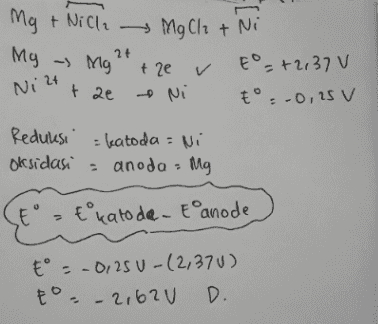 Mg + NiCl₂ → MgCl₂ + Ni
Mg → Mg²⁺ + 2e ✓ E° = +2,37 V
Ni²⁺ + 2e → Ni E° = -0,25 V
Reduksi = katoda = Ni
Oksidasi = anoda = Mg
E° = E° katoda - E° anode
E° = -0,25 V - (2,37 V)
E° = -2,62 V D.